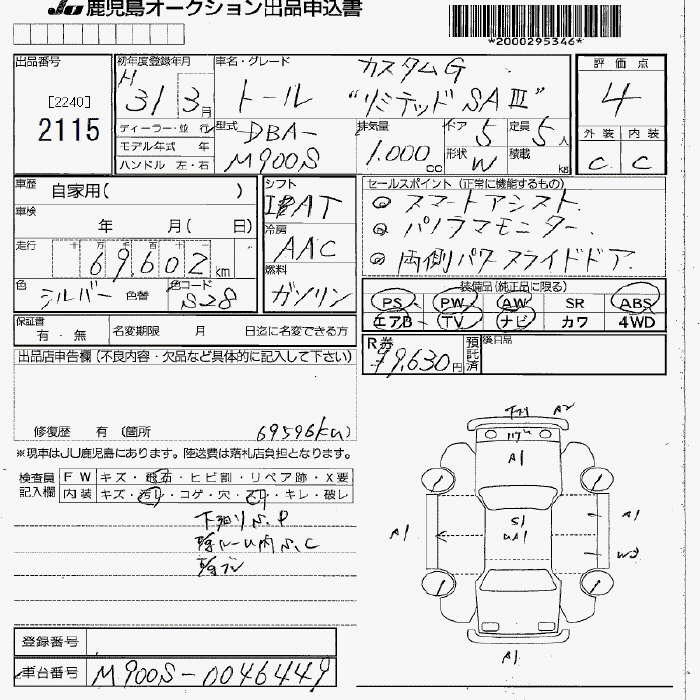 JU 鹿児島オークション出品申込書
*2000295346*
出品番号
[2240]
2115
初年度登録年月
H
31 3月
車名・グレード
カスタムG
トール "リミテッド SAⅢ"
評価点
4
外装 内装
C C
ディーラー・並行
モデル年式 年
ハンドル 左・右
型式
DBA-
M900S
排気量
1.000cc
ドア
5
定員
5人
形状
W
積載
kg
車歴
自家用( )
車検
年 月( 日)
走行
十 万 千 百 十 一
69602km
色
シルバー
色替
色コード
S28
シフト
AT
冷房
AAC
燃料
ガソリン
セールスポイント(正常に機能するもの)
◎ スマートアシスト.
◎ パノラマモニター.
◎ 両側パワースライドドア.
装備品(純正品に限る)
PS PW AW SR ABS
エアB TV ナビ カワ 4WD
保証書
有・無
名変期限 月 日迄に名変できる方
R券
¥9,630円
預託済
後日品
出品店申告欄(不良内容・欠品など具体的に記入して下さい)
修復歴 有(箇所
69596km)
※現車はJU鹿児島にあります。陸送費は落札店負担となります。
検査員記入欄
FW キズ・飛石・ヒビ割・リペア跡・X要
内装 キズ・汚レ・コゲ・穴・スレ・キレ・破レ
下廻りS.P
S.C
A2
A1
S1
A1
A1
A1
W2
A1
登録番号
車台番号
M900S-0046449